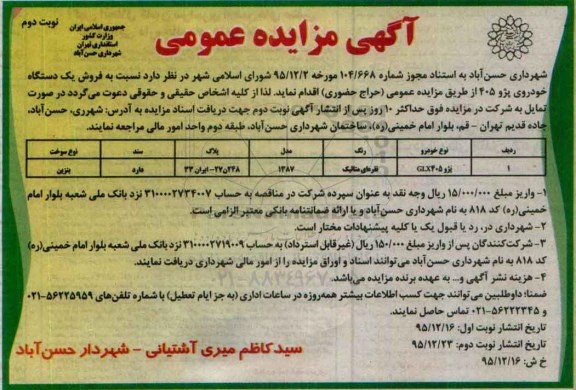 نوبت دوم
جمهوری اسلامی ایران
وزارت کشور
استانداری تهران
شهرداری حسن‌آباد
آگهی مزایده عمومی
شهرداری حسن‌آباد به استناد مجوز شماره ۱۰۴/۶۶۸ مورخه ۹۵/۱۲/۲ شورای اسلامی شهر در نظر دارد نسبت به فروش یک دستگاه
خودروی پژو ۴۰۵ از طریق مزایده عمومی (حراج حضوری) اقدام نماید. لذا از کلیه اشخاص حقیقی و حقوقی دعوت می‌گردد در صورت
تمایل به شرکت در مزایده فوق حداکثر ۱۰ روز پس از انتشار آگهی نوبت دوم جهت دریافت اسناد مزایده به آدرس: شهرری، حسن‌آباد،
جاده قدیم تهران - قم، بلوار امام خمینی(ره)، ساختمان شهرداری حسن‌آباد، طبقه دوم واحد امور مالی مراجعه نمایند.
ردیف نوع خودرو رنگ مدل پلاک سند نوع سوخت
۱ پژو GLX۴۰۵ نقره‌ای متالیک ۱۳۸۷ ۲۴۸ن۲۷- ایران ۳۳ دارد بنزین
۱- واریز مبلغ ۱۵/۰۰۰/۰۰۰ ریال وجه نقد به عنوان سپرده شرکت در مناقصه به حساب ۳۱۰۰۰۰۲۷۳۴۰۰۷ نزد بانک ملی شعبه بلوار امام
خمینی(ره) کد ۸۱۸ به نام شهرداری حسن‌آباد و یا ارائه ضمانتنامه بانکی معتبر الزامی است.
۲- شهرداری در، رد یا قبول یک یا کلیه پیشنهادات مختار است.
۳- شرکت‌کنندگان پس از واریز مبلغ ۱۵۰/۰۰۰ ریال (غیرقابل استرداد) به حساب ۳۱۰۰۰۰۲۷۱۹۰۰۹ نزد بانک ملی شعبه بلوار امام خمینی(ره)
کد ۸۱۸ به نام شهرداری حسن‌آباد می‌توانند اسناد و اوراق مزایده را از امور مالی شهرداری دریافت نمایند.
۴- هزینه نشر آگهی و... به عهده برنده مزایده می‌باشد.
ضمنا: داوطلبین می‌توانند جهت کسب اطلاعات بیشتر همه‌روزه در ساعات اداری (به جز ایام تعطیل) با شماره تلفن‌های ۵۶۲۲۵۹۵۹-۰۲۱
و ۵۶۲۲۲۳۴۵-۰۲۱ تماس حاصل نمایند.
تاریخ انتشار نوبت اول: ۹۵/۱۲/۱۶
تاریخ انتشار نوبت دوم: ۹۵/۱۲/۲۳
خ ش: ۹۵/۱۲/۱۶
سید کاظم میری آشتیانی - شهردار حسن‌آباد